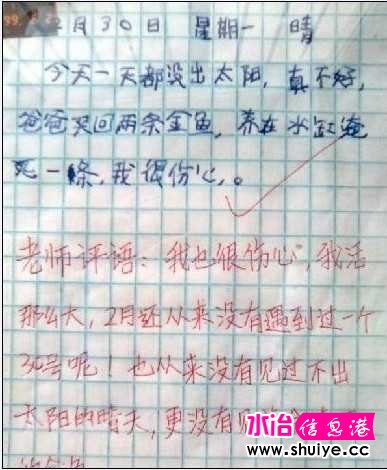 2月30日 星期一 晴
今天一天都没出太阳,真不好,
爸爸买回两条金鱼,养在水缸淹
死一條,我很伤心。
老师评语:我也很伤心,我活
那么大,2月还从来没有遇到过一个
30号呢!也从来没有见过不出
太阳的晴天,更没有见
水冶信息港
www.shuiye.cc